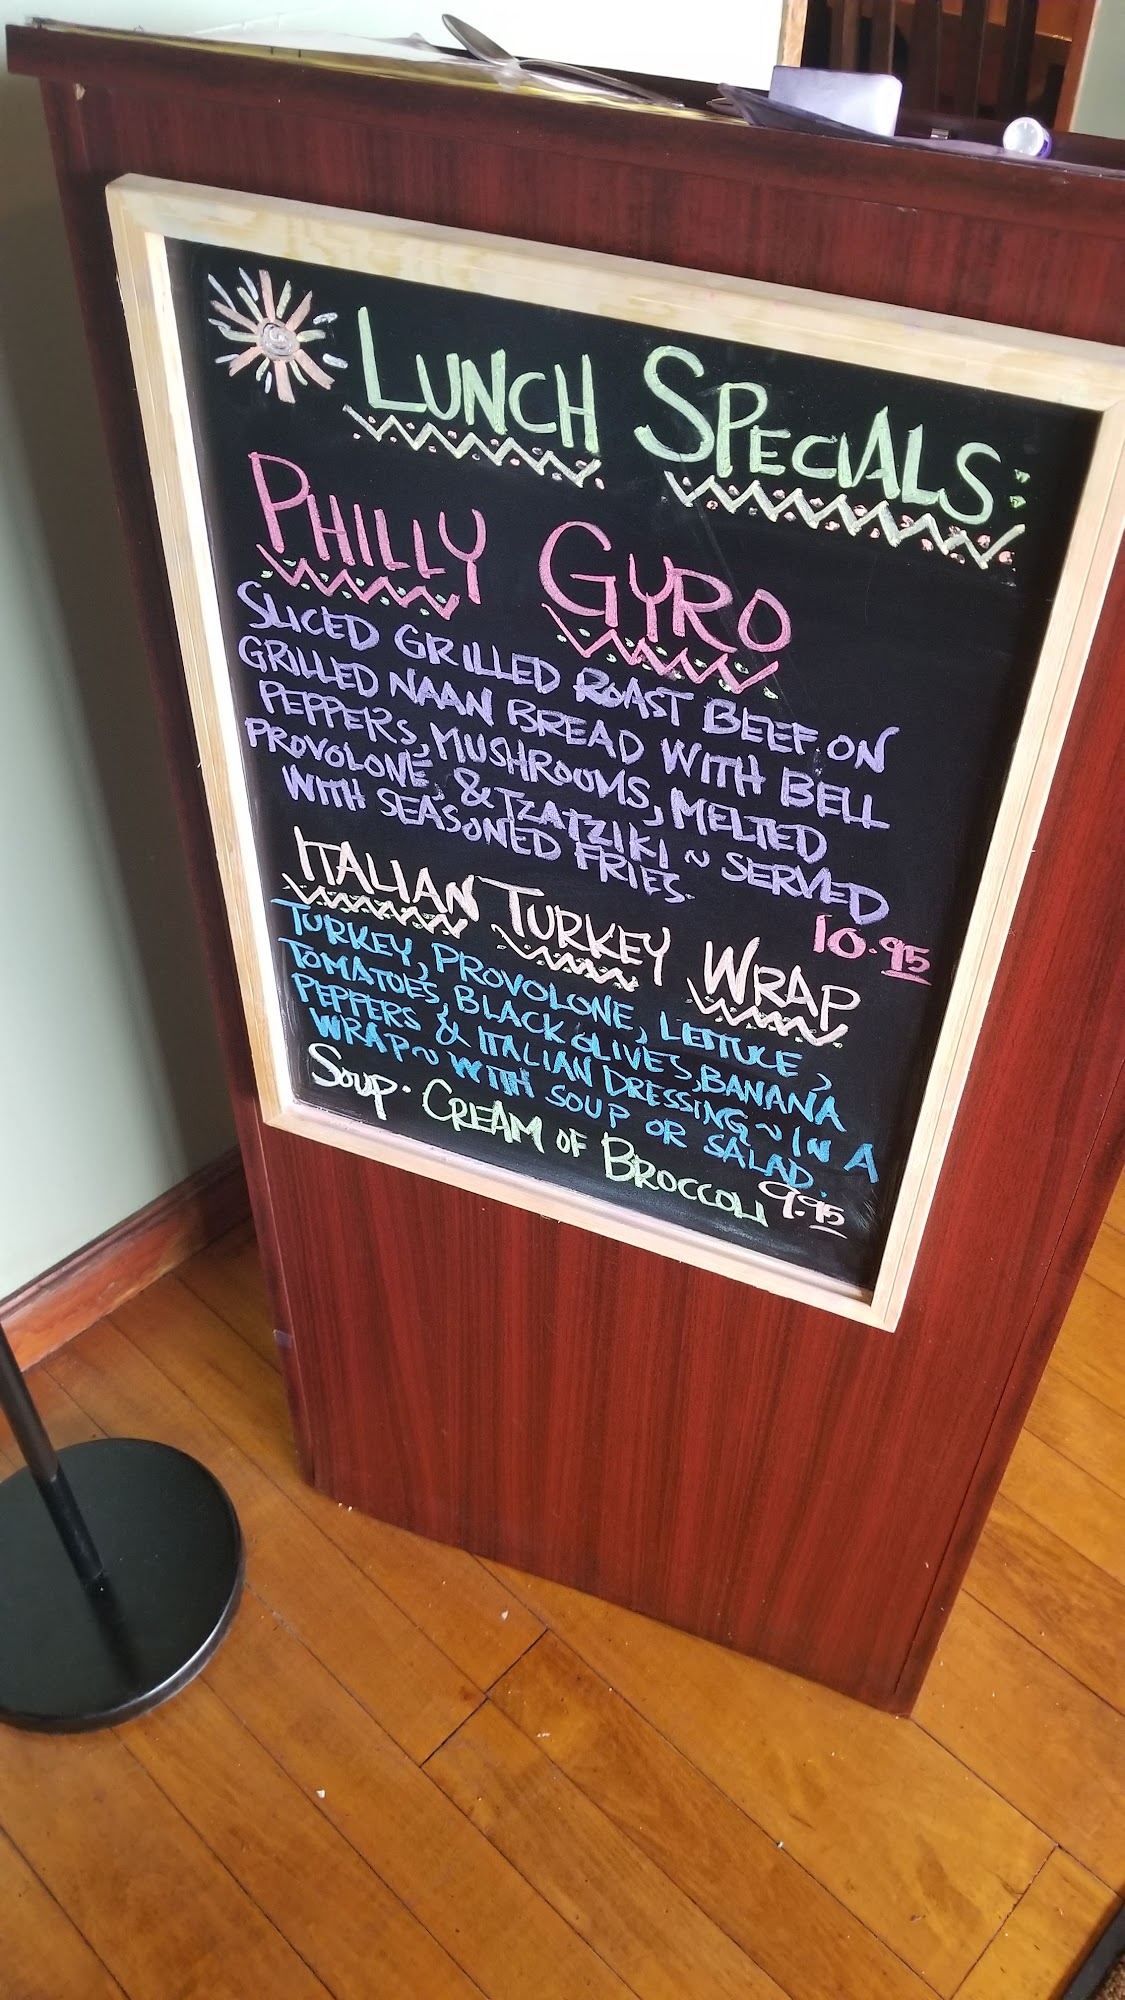 LUNCH SPECIALS:
PHILLY GYRO
SLICED GRILLED ROAST BEEF ON
GRILLED NAAN BREAD WITH BELL
PEPPERS, MUSHROOMS, MELTED
PROVOLONE, & TZATZIKI ~ SERVED
WITH SEASONED FRIES.
10.95
ITALIAN TURKEY WRAP
TURKEY, PROVOLONE, LETTUCE,
TOMATOES, BLACK OLIVES, BANANA
PEPPERS & ITALIAN DRESSING ~ IN A
WRAP ~ WITH SOUP OR SALAD.
9.95
SOUP · CREAM OF BROCCOLI